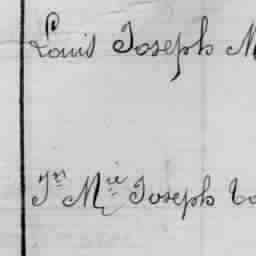 Louis Joseph M
Jn Mie Joseph